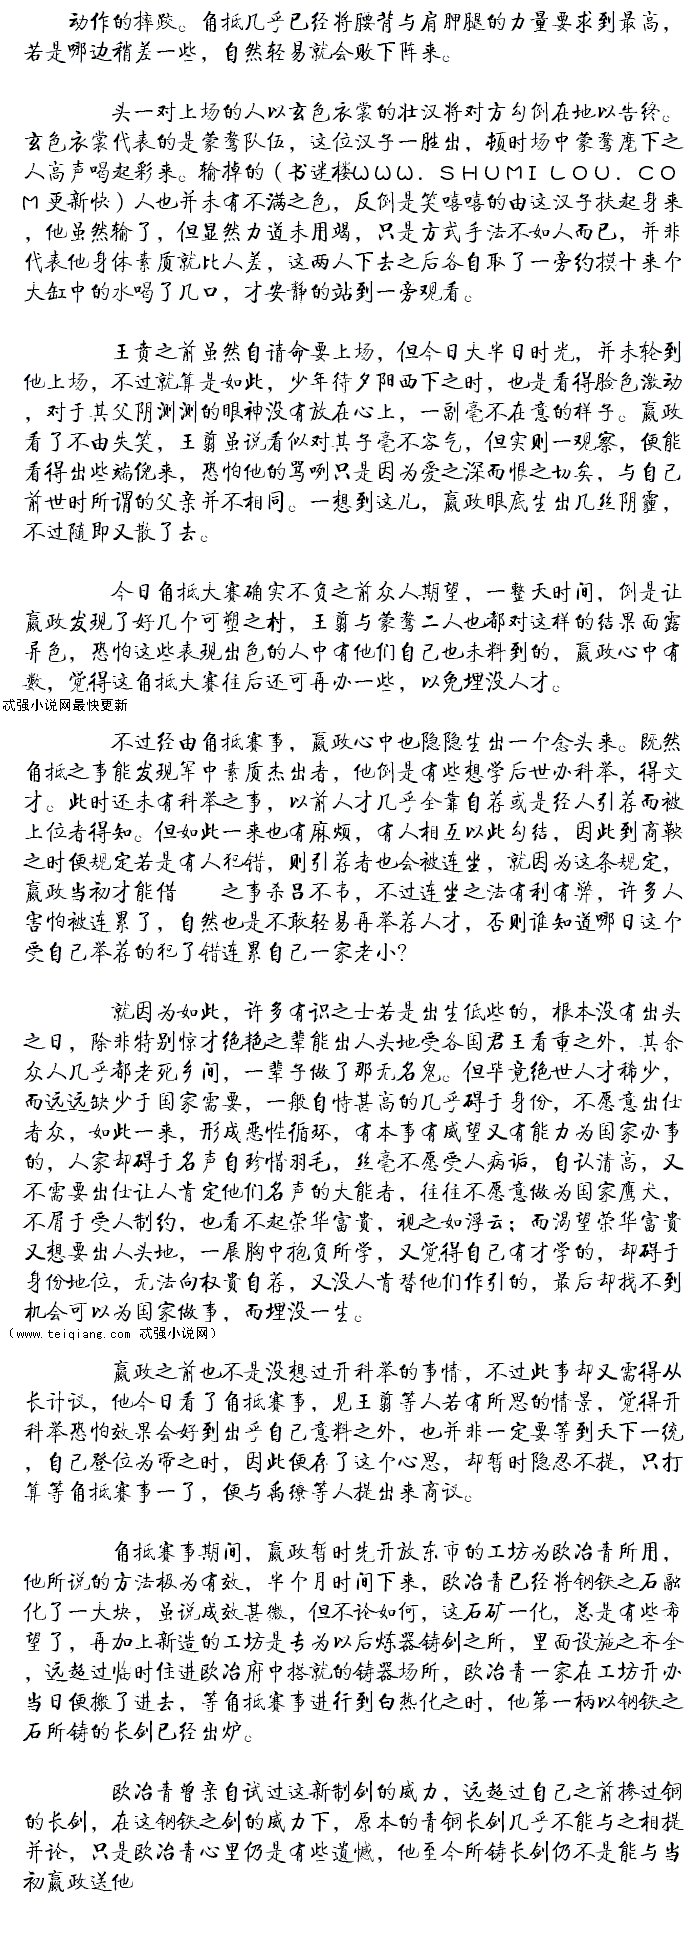 动作的摔跤。角抵几乎已经将腰背与肩胛腿的力量要求到最高，
若是哪边稍差一些，自然轻易就会败下阵来。
头一对上场的人以玄色衣裳的壮汉将对方勾倒在地以告终。
玄色衣裳代表的是蒙骜队伍，这位汉子一胜出，顿时场中蒙骜麾下之
人高声喝起彩来。输掉的（书迷楼ＷＷＷ．ＳＨＵＭＩＬＯＵ．ＣＯ
Ｍ更新快）人也并未有不满之色，反倒是笑嘻嘻的由这汉子扶起身来
，他虽然输了，但显然力道未用竭，只是方式手法不如人而已，并非
代表他身体素质就比人差，这两人下去之后各自取了一旁约摸十来个
大缸中的水喝了几口，才安静的站到一旁观看。
王贲之前虽然自请命要上场，但今日大半日时光，并未轮到
他上场，不过就算是如此，少年待夕阳西下之时，也是看得脸色激动
，对于其父阴测测的眼神没有放在心上，一副毫不在意的样子。嬴政
看了不由失笑，王翦虽说看似对其子毫不客气，但实则一观察，便能
看得出些端倪来，恐怕他的骂咧只是因为爱之深而恨之切矣，与自己
前世时所谓的父亲并不相同。一想到这儿，嬴政眼底生出几丝阴霾，
不过随即又散了去。
今日角抵大赛确实不负之前众人期望，一整天时间，倒是让
嬴政发现了好几个可塑之材，王翦与蒙骜二人也都对这样的结果面露
异色，恐怕这些表现出色的人中有他们自己也未料到的，嬴政心中有
数，觉得这角抵大赛往后还可再办一些，以免埋没人才。
忒强小说网最快更新
不过经由角抵赛事，嬴政心中也隐隐生出一个念头来。既然
角抵之事能发现军中素质杰出者，他倒是有些想学后世办科举，得文
才。此时还未有科举之事，以前人才几乎全靠自荐或是经人引荐而被
上位者得知。但如此一来也有麻烦，有人相互以此勾结，因此到商鞅
之时便规定若是有人犯错，则引荐者也会被连坐，就因为这条规定，
嬴政当初才能借　　之事杀吕不韦，不过连坐之法有利有弊，许多人
害怕被连累了，自然也是不敢轻易再举荐人才，否则谁知道哪日这个
受自己举荐的犯了错连累自己一家老小？
就因为如此，许多有识之士若是出生低些的，根本没有出头
之日，除非特别惊才绝艳之辈能出人头地受各国君王看重之外，其余
众人几乎都老死乡间，一辈子做了那无名鬼。但毕竟绝世人才稀少，
而远远缺少于国家需要，一般自恃甚高的几乎碍于身份，不愿意出仕
者众，如此一来，形成恶性循环，有本事有威望又有能力为国家办事
的，人家却碍于名声自珍惜羽毛，丝毫不愿受人病诟，自认清高，又
不需要出仕让人肯定他们名声的大能者，往往不愿意做为国家鹰犬，
不屑于受人制约，也看不起荣华富贵，视之如浮云；而渴望荣华富贵
又想要出人头地，一展胸中抱负所学，又觉得自己有才学的，却碍于
身份地位，无法向权贵自荐，又没人肯替他们作引的，最后却找不到
机会可以为国家做事，而埋没一生。
（www.teiqiang.com 忒强小说网）
嬴政之前也不是没想过开科举的事情，不过此事却又需得从
长计议，他今日看了角抵赛事，见王翦等人若有所思的情景，觉得开
科举恐怕效果会好到出乎自己意料之外，也并非一定要等到天下一统
，自己登位为帝之时，因此便存了这个心思，却暂时隐忍不提，只打
算等角抵赛事一了，便与禹缭等人提出来商议。
角抵赛事期间，嬴政暂时先开放东市的工坊为欧冶青所用，
他所说的方法极为有效，半个月时间下来，欧冶青已经将钢铁之石融
化了一大块，虽说成效甚微，但不论如何，这石矿一化，总是有些希
望了，再加上新造的工坊是专为以后炼器铸剑之所，里面设施之齐全
，远超过临时住进欧冶府中搭就的铸器场所，欧冶青一家在工坊开办
当日便搬了进去，等角抵赛事进行到白热化之时，他第一柄以钢铁之
石所铸的长剑已经出炉。
欧冶青曾亲自试过这新制剑的威力，远超过自己之前掺过铜
的长剑，在这钢铁之剑的威力下，原本的青铜长剑几乎不能与之相提
并论，只是欧冶青心里仍是有些遗憾，他至今所铸长剑仍不是能与当
初嬴政送他